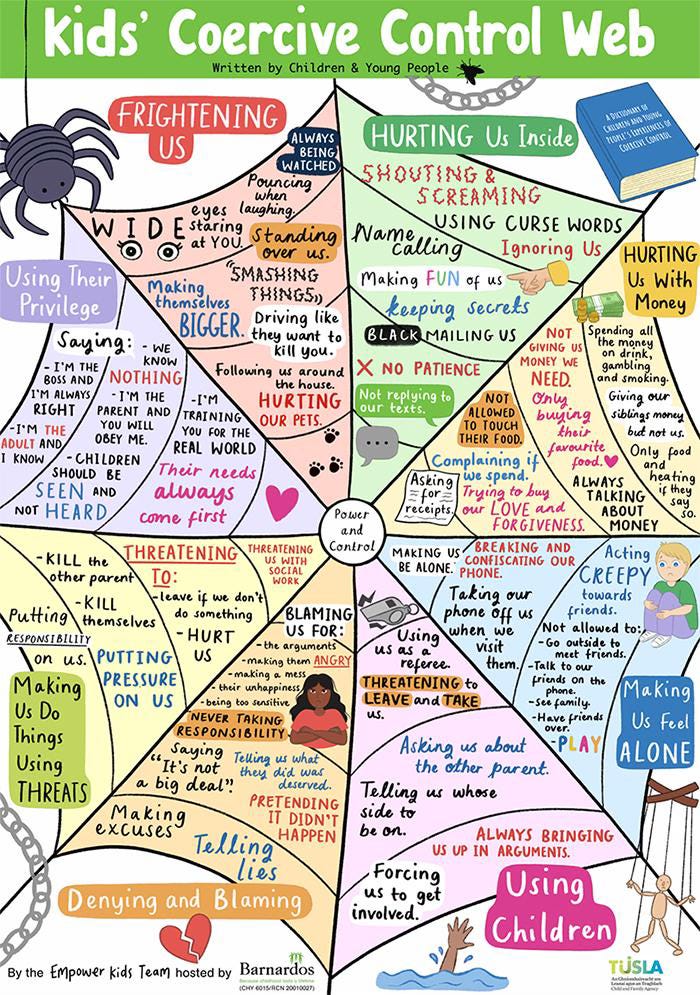 Kids' Coercive Control Web
Written by Children & Young People
FRIGHTENING
US
ALWAYS
BEING
WATCHED
Pouncing
when
laughing.
WIDE
eyes
staring
at YOU.
Standing
over us.
"SMASHING
THINGS"
Making
themselves
BIGGER.
Driving like
they want to
kill you.
Following us around
the house.
HURTING
OUR PETS.
HURTING Us Inside
SHOUTING &
SCREAMING
USING CURSE WORDS
Name
calling
Ignoring Us
Making FUN of us
keeping secrets
BLACK MAILING US
X NO PATIENCE
Not replying to
our texts.
A DICTIONARY OF
CHILDREN AND YOUNG
PEOPLE'S EXPERIENCES OF
COERCIVE CONTROL
HURTING
Us With
Money
Spending all
the money
on drink,
gambling
and smoking.
Giving our
siblings money
but not us.
Only food
and
heating
if they
say
so.
NOT
GIVING US
MONEY WE
NEED.
Only
buying
their
favourite
food.
ALWAYS
TALKING
ABOUT
MONEY
NOT
ALLOWED
TO TOUCH
THEIR FOOD.
Complaining if
we spend.
Trying to buy
our LOVE and
FORGIVENESS.
Asking
for
receipts.
Using Their
Privilege
Saying:
- I'M THE
BOSS AND
I'M ALWAYS
RIGHT
- I'M THE
ADULT AND
I KNOW
- WE
KNOW
NOTHING
- I'M THE
PARENT AND
YOU WILL
OBEY ME.
- CHILDREN
SHOULD BE
SEEN AND
NOT HEARD
- I'M
TRAINING
YOU FOR THE
REAL WORLD
Their needs
always
come first
Power
and
Control
Making
Us Do
Things
Using
THREATS
Putting
RESPONSIBILITY
on us.
- KILL the
other parent
- KILL
themselves
PUTTING
PRESSURE
ON US
THREATENING
TO:
- leave if we don't
do something
- HURT
US
THREATENING
US WITH
SOCIAL
WORK
BLAMING
US FOR:
- the arguments
- making them ANGRY
- making a mess
- their unhappiness
- being too sensitive
NEVER TAKING
RESPONSIBILITY
Saying
"It's not
a big deal".
Telling us what
they did was
deserved.
PRETENDING
IT DIDN'T
HAPPEN
Making
excuses
Telling
lies
Denying and Blaming
Using
us as a
referee.
THREATENING to
LEAVE and TAKE
us.
Asking us about
the other parent.
Telling us whose
side to
be on.
ALWAYS BRINGING
US UP IN ARGUMENTS.
Forcing
us to get
involved.
Using
Children
MAKING US
BE ALONE.
BREAKING AND
CONFISCATING OUR
PHONE.
Taking our
phone off us
when we
visit
them.
Acting
CREEPY
towards
friends.
Not allowed to:
- Go outside to
meet friends.
- Talk to our
friends on the
phone.
- See family.
- Have friends
over.
- PLAY
Making
Us Feel
ALONE
By the Empower Kids Team hosted by
Barnardos
Because childhood lasts a lifetime
(CHY 6015/RCN 20010027)
TUSLA
An Ghníomhaireacht um
Leanaí agus an Teaghlach
Child and Family Agency